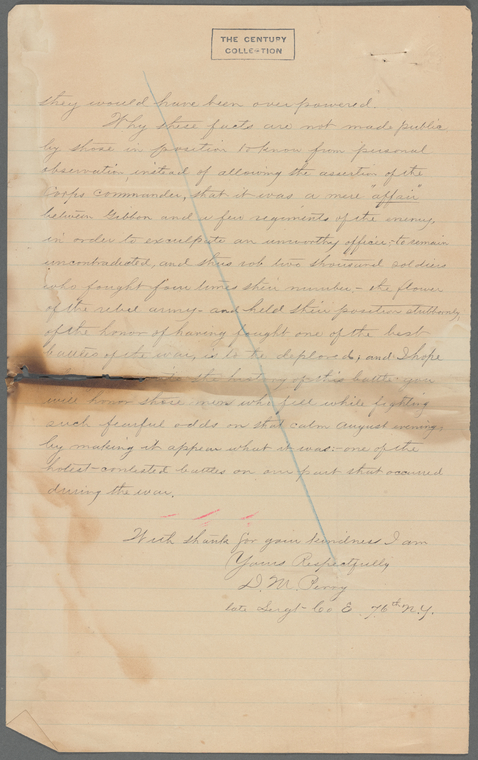 THE CENTURY
COLLECTION
they would have been over powered.
Why these facts are not made public
by those in position to know from personal
observation, instead of allowing the assertion of the
Corps commander, that it was a mere "affair"
between Gibbon and a few regiments of the enemy,
in order to exculpate an unworthy officer, to remain
uncontradicted, and thus rob two thousand soldiers
who fought four times their number - the flower
of the rebel army - and held their position stubbornly,
of the honor of having fought one of the best
battles of the war, is to be deplored; and I hope
the history of this battle you
will honor those men who fell while fighting
such fearful odds on that calm August evening,
by making it appear what it was:- one of the
hotest-contested battles on our part that occurred
during the war.
With thanks for your kindness I am
Yours Respectfully
D. M. Perry
late Sergt- Co E 76th N.Y.